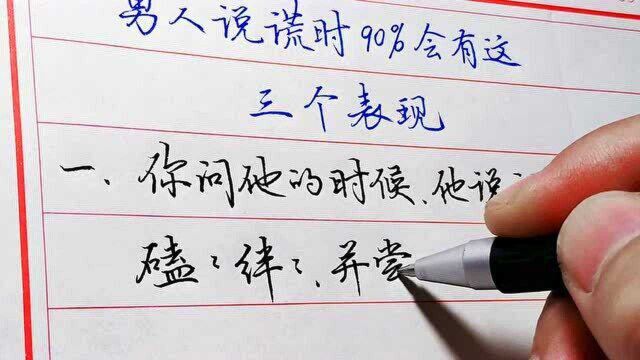 男人说谎时90%会有这
三个表现
一、你问他的时候、他说
磕々绊々、并尝